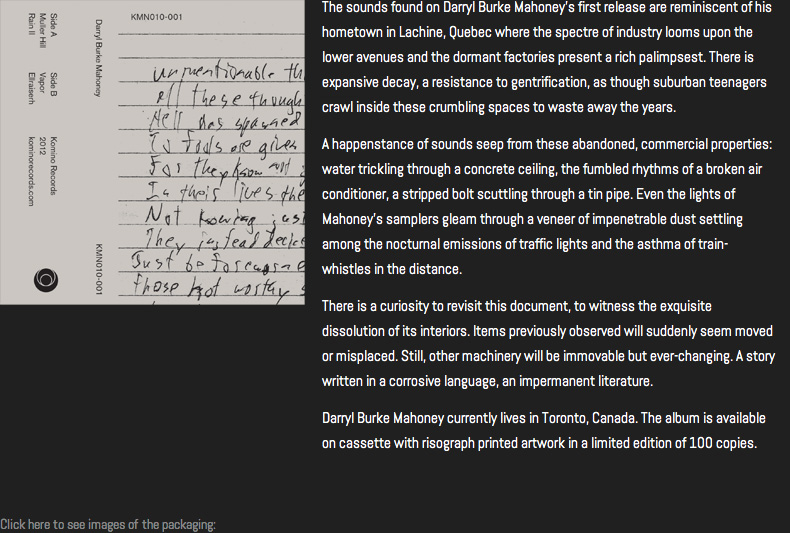 Side A
Muller Hill
Rain II
Side B
Vapor
Ellraiserh
Komino Records
2012
kominorecords.com
Darryl Burke Mahoney
KMN010-001
KMN010-001
unmentionable th
All these though
Hell has spawned
To fools are given
For they know not
In their lives the
Not knowing just
They instead
Just be
those not worthy s
The sounds found on Darryl Burke Mahoney's first release are reminiscent of his
hometown in Lachine, Quebec where the spectre of industry looms upon the
lower avenues and the dormant factories present a rich palimpsest. There is
expansive decay, a resistance to gentrification, as though suburban teenagers
crawl inside these crumbling spaces to waste away the years.
A happenstance of sounds seep from these abandoned, commercial properties:
water trickling through a concrete ceiling, the fumbled rhythms of a broken air
conditioner, a stripped bolt scuttling through a tin pipe. Even the lights of
Mahoney's samplers gleam through a veneer of impenetrable dust settling
among the nocturnal emissions of traffic lights and the asthma of train-
whistles in the distance.
There is a curiosity to revisit this document, to witness the exquisite
dissolution of its interiors. Items previously observed will suddenly seem moved
or misplaced. Still, other machinery will be immovable but ever-changing. A story
written in a corrosive language, an impermanent literature.
Darryl Burke Mahoney currently lives in Toronto, Canada. The album is available
on cassette with risograph printed artwork in a limited edition of 100 copies.
Click here to see images of the packaging: